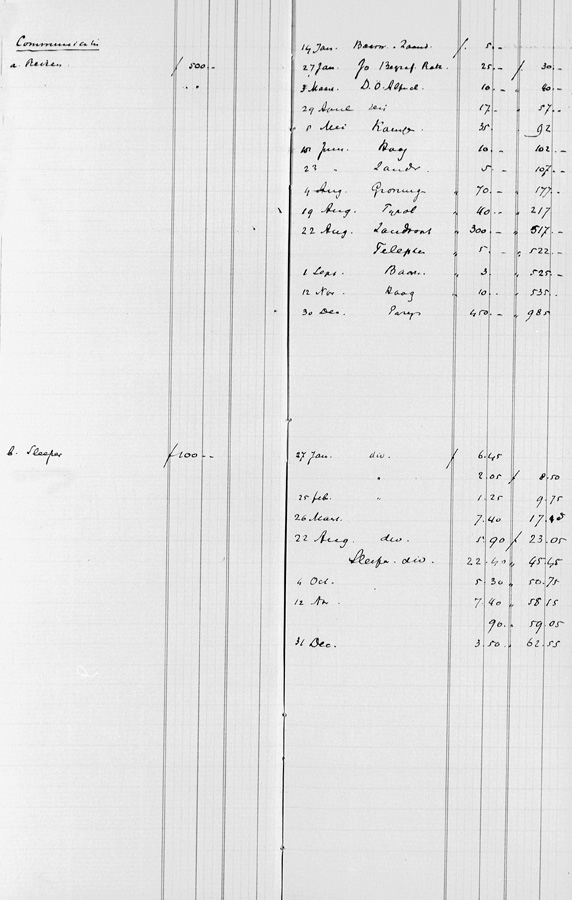 Communicatie
a. Reizen ƒ 500.-
14 Jan. ƒ 5.-
27 Jan. Jo 25.- ƒ 30.-
3 Maart D.O. 10.- 40.-
29 April 17.- 57.-
5 Mei Kampen 35. 92
10.- 102.-
23 " 5.- 107.-
4 Aug. Groning " 70.- " 177.-
19 Aug. Tyrol " 40.- " 217
22 Aug. " 300.- " 517.-
Telepho " 5.- " 522.-
1 Sept. Baarn. " 3. " 525.-
12 Nov. Haag " 10.. " 535..
30 Dec. Parijs 450.- " 985
b. Sleeper ƒ 100.-
27 Jan. div. ƒ 6.45
" 2.05 ƒ 8.50
25 feb. " 1.25 9.75
26 Maart. 7.40 17.
22 Aug. div. 5.90 ƒ 23.05
Sleeper. div. 22.40 " 45.45
4 Oct. 5.30 " 50.75
12 Nov. 7.40 " 58.15
90. " 59.05
31 Dec. 3.50 " 62.55